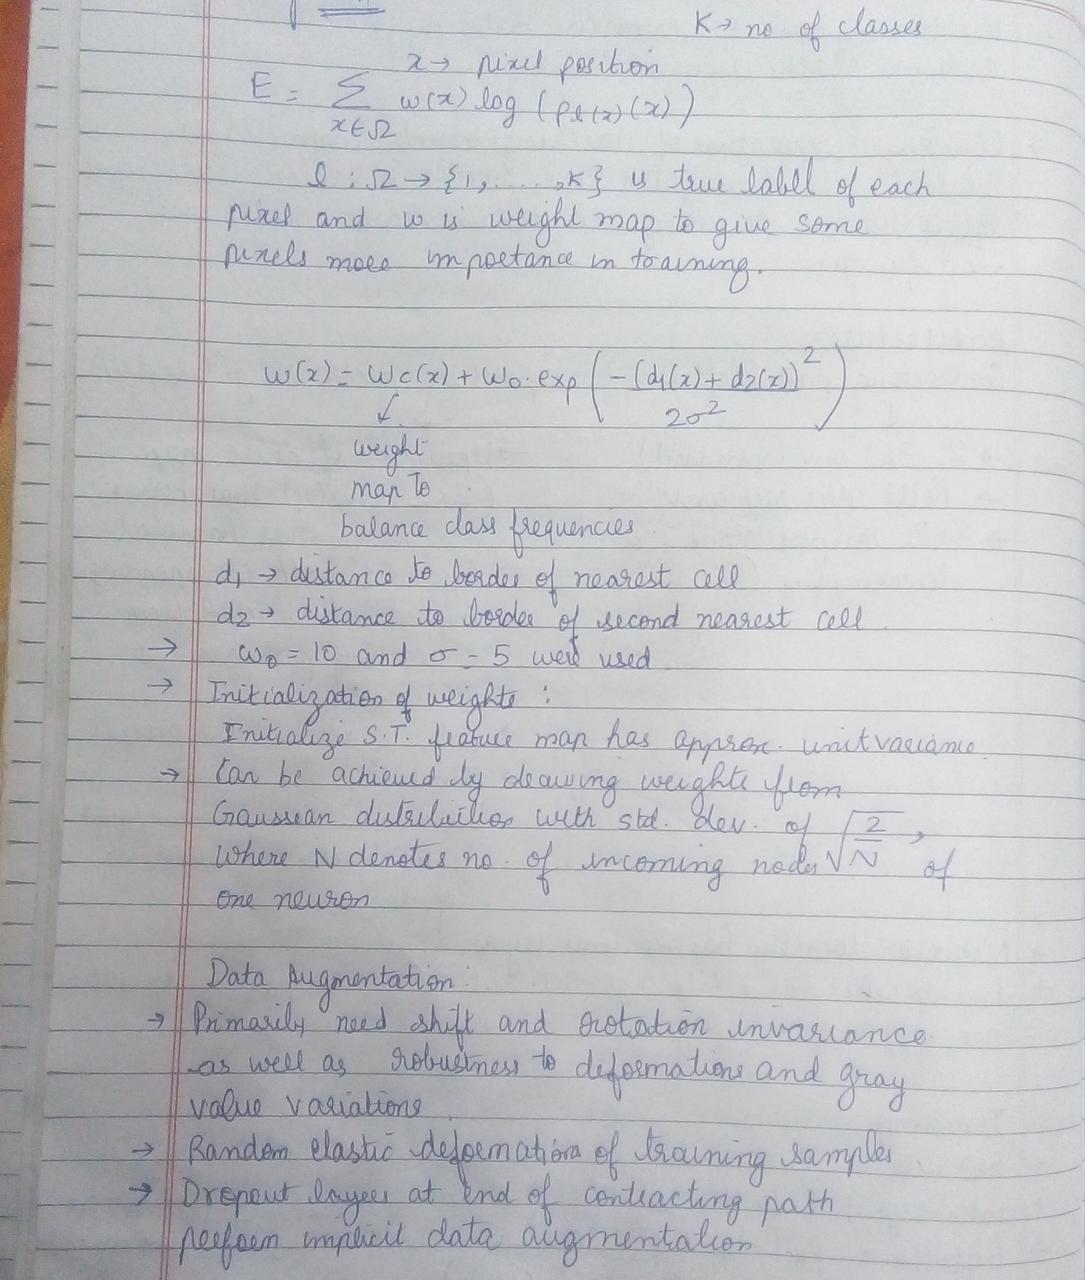 K → no of classes
x → pixel position
E = Σ w(x) log (pl(x)(x))
x∈Ω
l : Ω → {1, ......, K} is true label of each
pixel and w is weight map to give some
pixels more importance in training.
w(x) = wc(x) + w0. exp ( -(d1(x) + d2(x))^2 / 2σ^2 )
↓
weight
map to
balance class frequencies
d1 → distance to border of nearest cell
d2 → distance to border of second nearest cell
→ w0 = 10 and σ = 5 were used
→ Initialization of weights :
Initialize S.T. feature map has approx. unit variance
→ Can be achieved by drawing weights from
Gaussian distribution with std. dev. of √(2/N) ,
where N denotes no. of incoming nodes of
one neuron
Data Augmentation:
→ Primarily need shift and rotation invariance
as well as robustness to deformations and gray
value variations
→ Random elastic deformation of training samples
→ Dropout layers at end of contracting path
perform implicit data augmentation